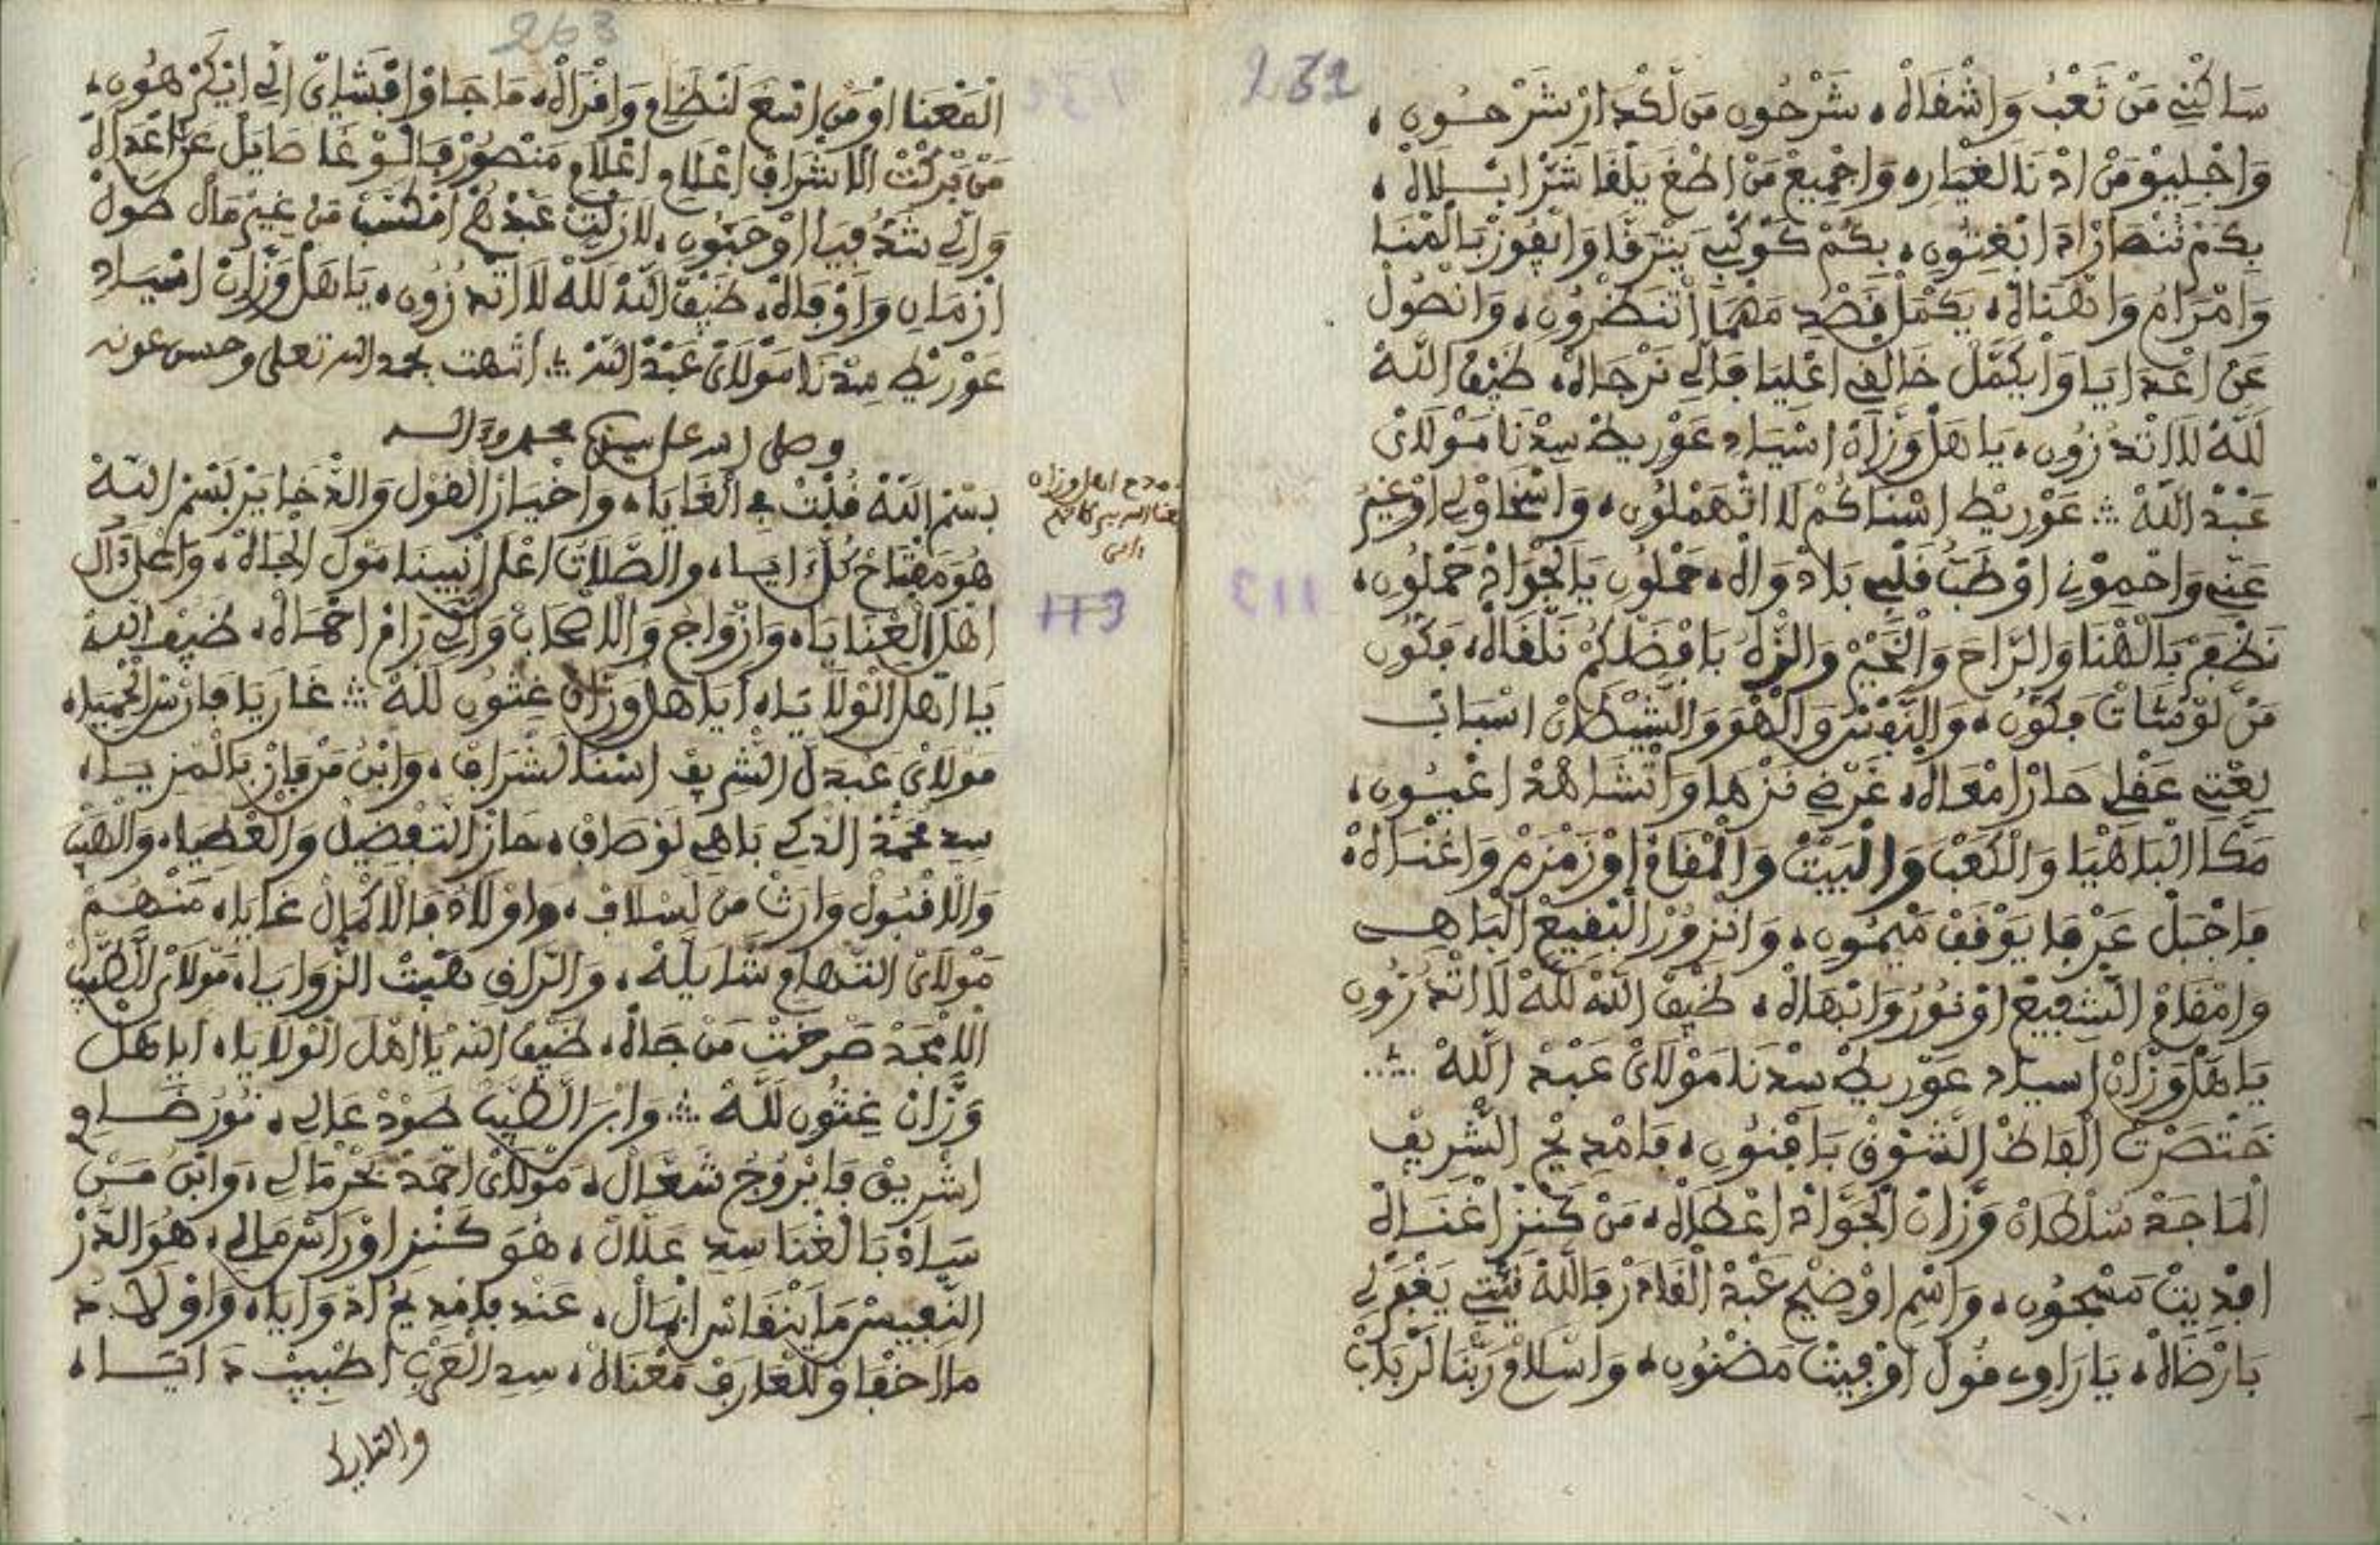 232
ساكني من تعب واشقاه، شرحون من لكدار شرحون،
واجليو من ادنا الغيار، واجميع من اطغ يلقا شر ابلاه،
بكم ننصار ادا نغتون، بكم كوكبي يترقا وانفوز بالمنا
وامرام وانهناه، يكمل قصد مهما اتنظرون، وانصول
عن اعدايا وايكمل خالقي اعليا فالي نرجاه، ضيف الله
لله لا اتدرون، ياهل وزان اسياد عوريط سدنا مولاي
عبد الله ؞ عوريط اسناكم لا اتهملون، واسخاولي اوغير
عني واحمون اوطب قلبي بلاد واه، حملون يالجواد حملون،
نظفر بالهنا والراح والخير والنزه بافضلكم نلقاه، فكون
من لومتات فكون، والنفس والهو والشيطان اسباب
يغتي عقلي حار امعاه، غرضي نزها وانشاهد اعيون،
مكا الباهيا والكعب والبيت والمقام اوزمزم واغناه،
فاجبل عرفا يوقف ميمون، وانزور البقيع الباهي
وامقام الشفيع اونور وابهاه، ضيف الله لله لا اتدرون
ياهل وزان اسياد عوريط سدنا مولاي عبد الله ؞
ختصرت الفاظ الشوق بافنون، فامديح الشريف
الماجد سلطان وزان الجواد اعطاه، من كنز اغناه
افديت مسجون، واسم اوضيح عبد القادر فالله نيتي يغفر لي
بارضاه، ياراوي قول اوفيت مضنون، واسلام ربنا لرباب
263
المعنا اومن اتبع لنظام واقراه، ما جاوا قبشاي الي ايكرهون،
من بركت الاشراف اعلام اعلام منصور فالوغا طايل عن اعداه
والي شد فيا اوحبون، لازلت عبدهم امكتب من غير مال طول
ازمان واوقاه، ضيف الله لله لا اتدرون، ياهل وزان اسياد
عوريط سدنا مولاي عبد الله ؞ انتهت بحمد الله تعلى وحسن عونه
وصلى الله على سيدنا محمد وءاله
بسم الله قلت في الغايا، واخيار القول والدخاير بسم الله
هو مفتاح كل ايا، والصلات اعل انبينا مول الجاه، واعل ءال
اهل العنايا، وازواج والاصحاب والي رام احماه، ضيف الله
يااهل الولايا، اياهل وزان غثون لله ؞ غار يا فارس الحميا،
مولاي عبدل الشريف اسنا لشراف، وابن من فاز بالمزيا،
سد محمد الدكي باهي لوصاف، حاز التفضيل والعطيا، والهيب
والاقبول وارث من لسلاف، واولاد فالاكمال غايا، منهم
مولاي التهام شايله، والراق هيبت الزوايا، مولاي الطيب
الامجد صرخت من جاه، ضيف الله يااهل الولايا، اياهل
وزان غثون لله ؞ وابن الطيب طود عالي، نور ضاو
اشريق فابروج شعال، مولاي احمد بحر مالي، وابن من
ساد بالغنا سد علال، هو كنز اوراس مالي، هو الدر
النفيس ما ينقاس ابمال، عند فامديح ادوايا، واولاد
مااخفاو للعارف معناه، سد العربي اطبيب دايا،
والتايك
مدح اهل وزان
113